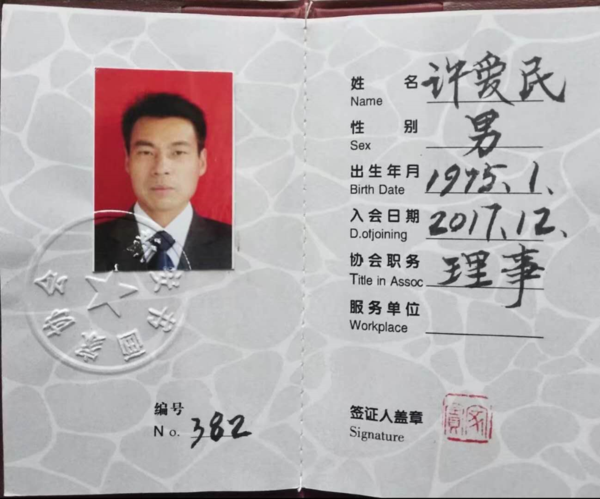 编号
No. 382
姓名 许爱民
Name
性别 男
Sex
出生年月 1975.1.
Birth Date
入会日期 2017.12.
D.ofjoining
协会职务 理事
Title in Assoc
服务单位
Workplace
签证人盖章
Signature